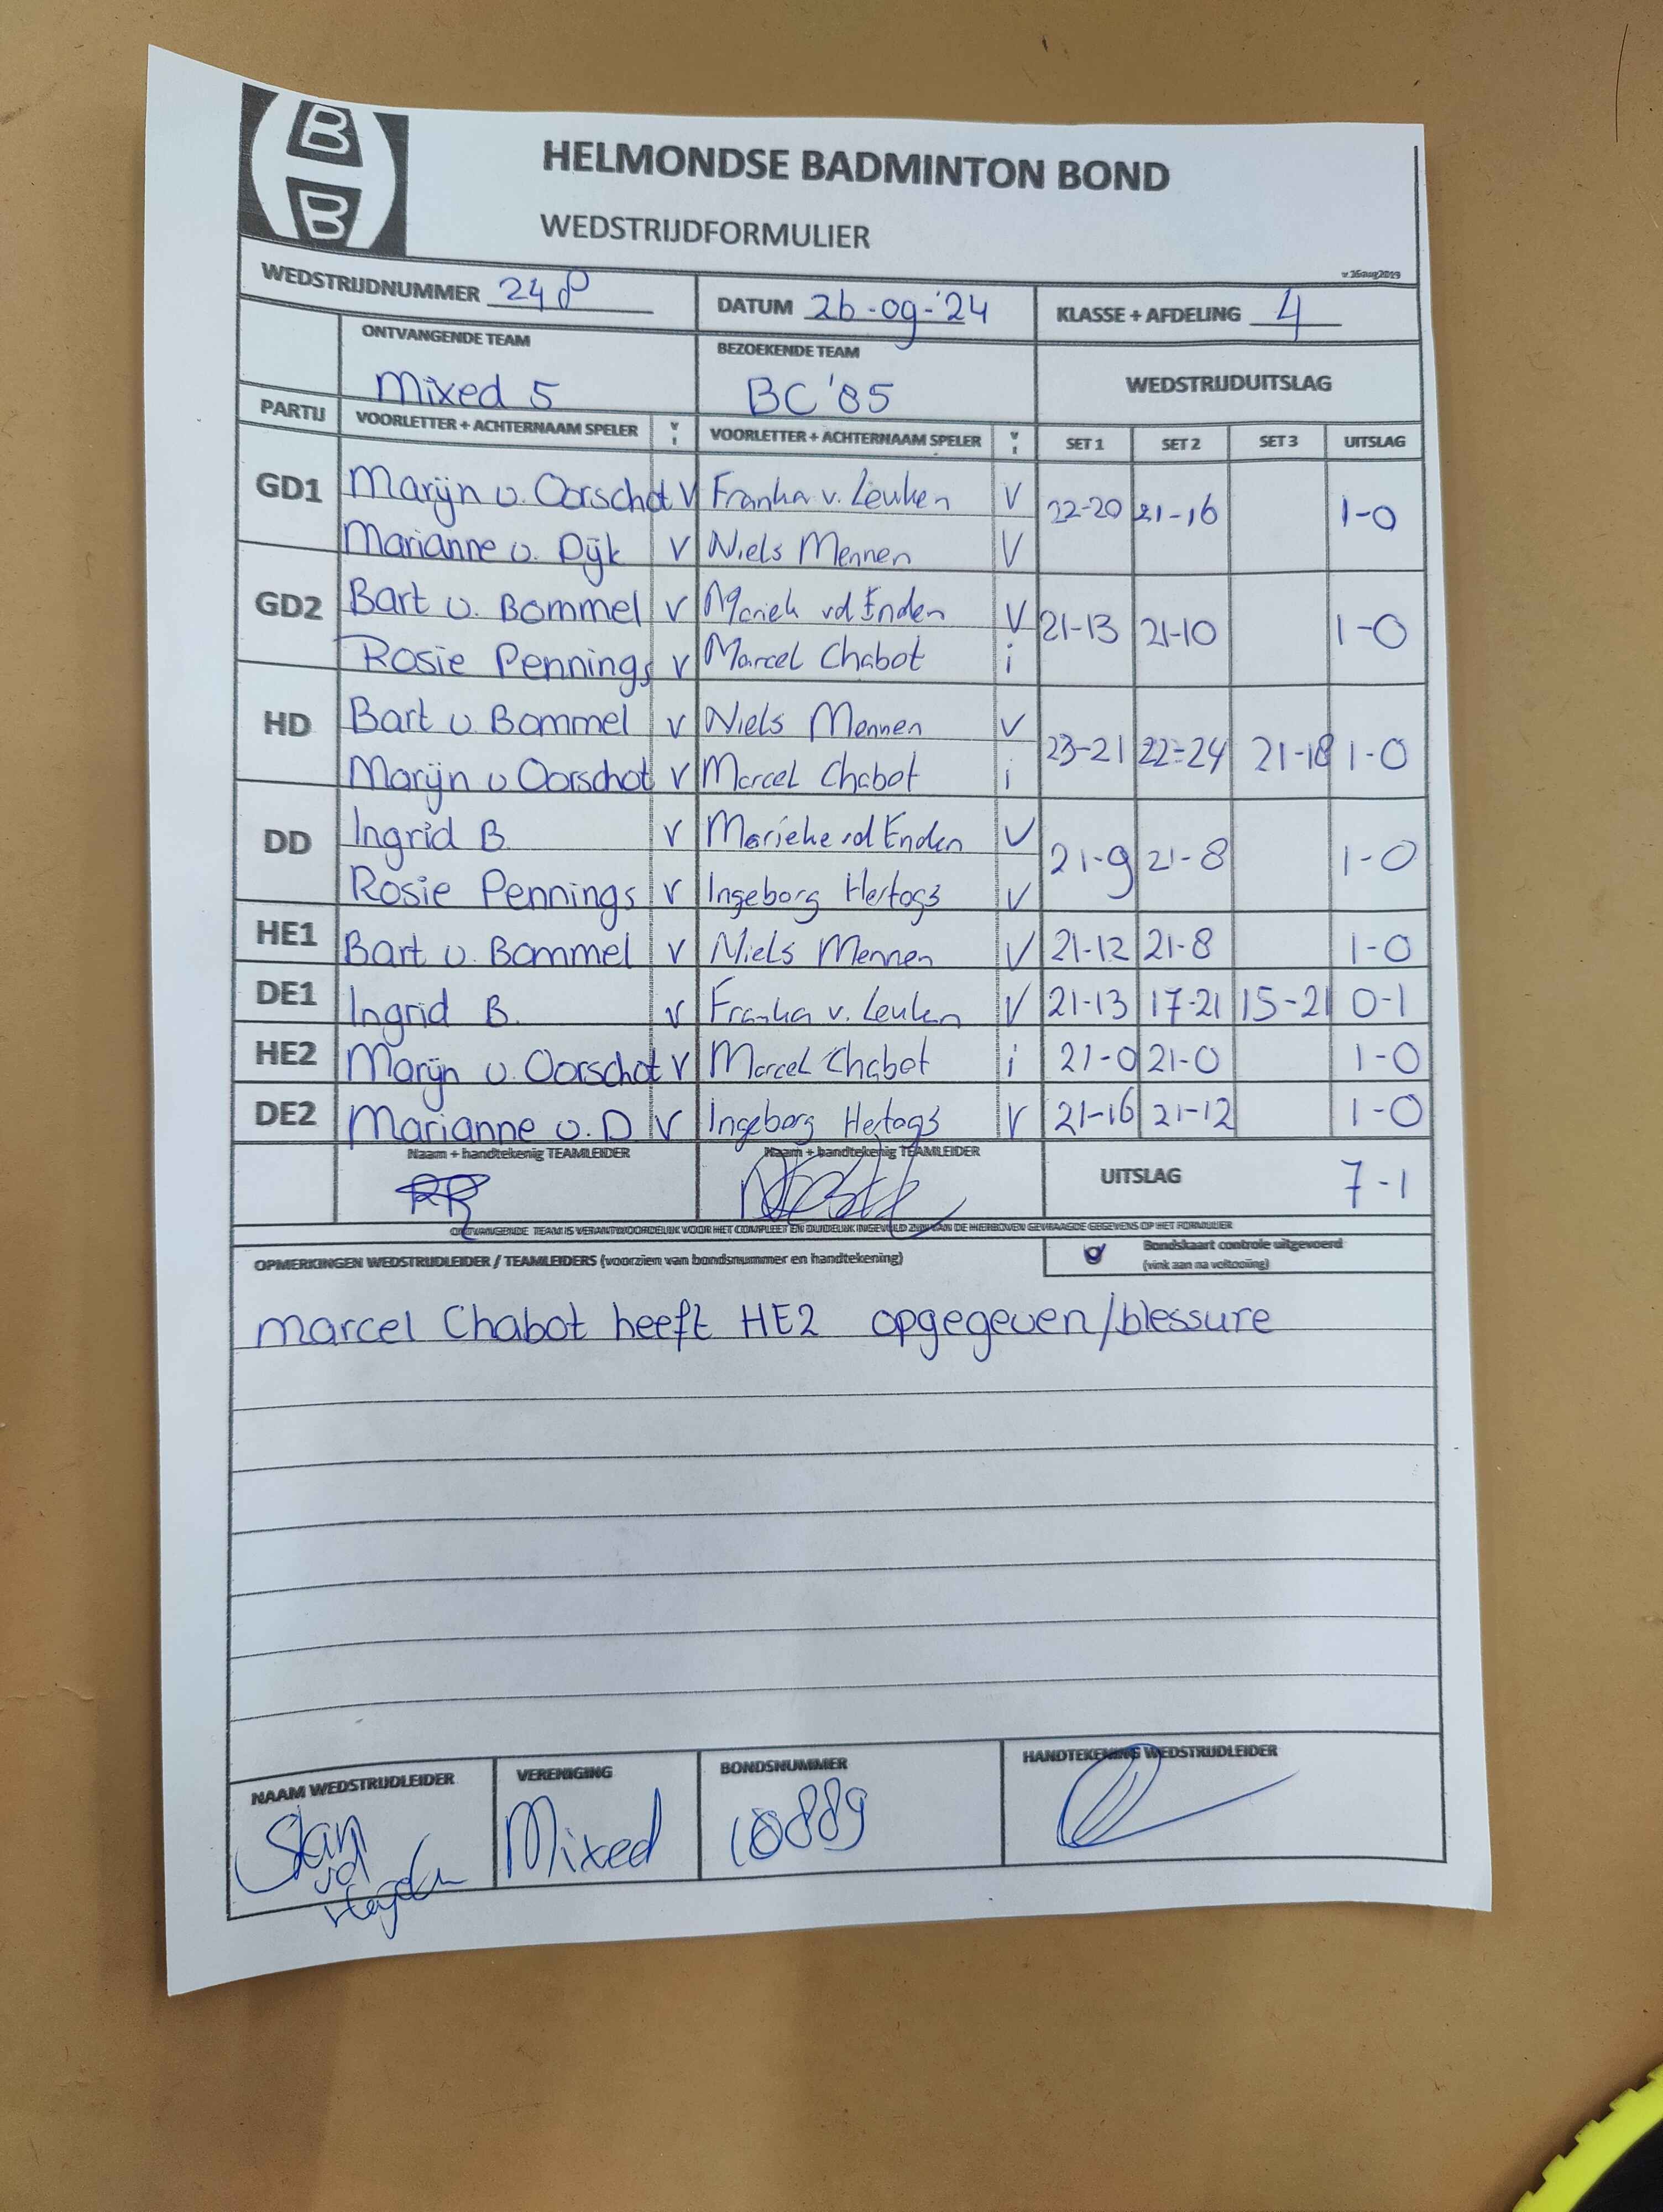 B
B
HELMONDSE BADMINTON BOND
WEDSTRIJDFORMULIER
v.16aug2019
WEDSTRIJDNUMMER 248 DATUM 26-09-'24 KLASSE + AFDELING 4
ONTVANGENDE TEAM BEZOEKENDE TEAM WEDSTRIJDUITSLAG
Mixed 5 BC '85
PARTIJ VOORLETTER + ACHTERNAAM SPELER V I VOORLETTER + ACHTERNAAM SPELER V I SET 1 SET 2 SET 3 UITSLAG
GD1 Marijn v. Oorschot V Franka v. Leuken V 22-20 21-16 1-0
Marianne v. Dijk V Niels Mennen V
GD2 Bart v. Bommel V Mariek vd Enden V 21-13 21-10 1-0
Rosie Pennings V Marcel Chabot i
HD Bart v Bommel V Niels Mennen V 23-21 22-24 21-18 1-0
Marijn v Oorschot V Marcel Chabot i
DD Ingrid B. V Marieke vd Enden V 21-9 21-8 1-0
Rosie Pennings V Ingeborg Hertogs V
HE1 Bart v. Bommel V Niels Mennen V 21-12 21-8 1-0
DE1 Ingrid B. V Franka v. Leuken V 21-13 17-21 15-21 0-1
HE2 Marijn v. Oorschot V Marcel Chabot i 21-0 21-0 1-0
DE2 Marianne v. D V Ingeborg Hertogs V 21-16 21-12 1-0
Naam + handtekenig TEAMLEIDER Naam + handtekenig TEAMLEIDER UITSLAG 7-1
ONTVANGENDE TEAM IS VERANTWOORDELIJK VOOR HET COMPLEET EN DUIDELIJK INGEVULD ZIJN VAN DE HIERBOVEN GEVRAAGDE GEGEVENS OP HET FORMULIER
OPMERKINGEN WEDSTRIJDLEIDER / TEAMLEIDERS (voorzien van bondsnummer en handtekening) Bondskaart controle uitgevoerd
(vink aan na voltooiing)
Marcel Chabot heeft HE2 opgegeven/blessure
NAAM WEDSTRIJDLEIDER VERENIGING BONDSNUMMER HANDTEKENING WEDSTRIJDLEIDER
Stan vd Mixed 10889